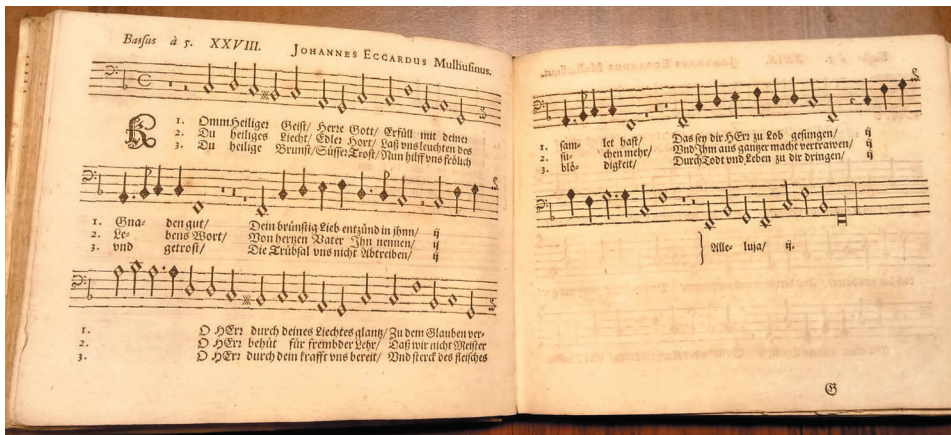 Baſſus à 5. XXVIII. JOHANNES ECCARDUS Mulhuſinus.
1. OmmHeiliger Geiſt/ Herre Gott/ Erfüll mit deiner
K 2. Du heiliges Liecht/ Edler Hort/ Laß vns leuchten des
3. Du heilige Brunſt/ Süſſer Troſt/ Nun hilff vns frölich
1. Gna- den gut/ Dein brünſtig Lieb entzünd in jhnn/ ij
2. Le- bens Wort/ Von hertzen Vater Ihn nennen/ ij
3. vnd getroſt/ Die Trübſal vns nicht Abtreiben/ ij
1. O HErr durch deines Liechtes glantz/ Zu dem Glauben ver-
2. O HErr behüt für frembder Lehr/ Daß wir nicht Meiſter
3. O HErr durch dein krafft vns bereit/ Vnd ſterck des fleiſches
1. ſam- let haſt/ Das ſey dir HErr zu Lob geſungen/ ij
2. ſü- chen mehr/ Vnd Ihm aus gantzer macht vertrawen/ ij
3. blö- digkeit/ Durch Todt vnd Leben zu dir dringen/ ij
Alle- luja/ ij.
G